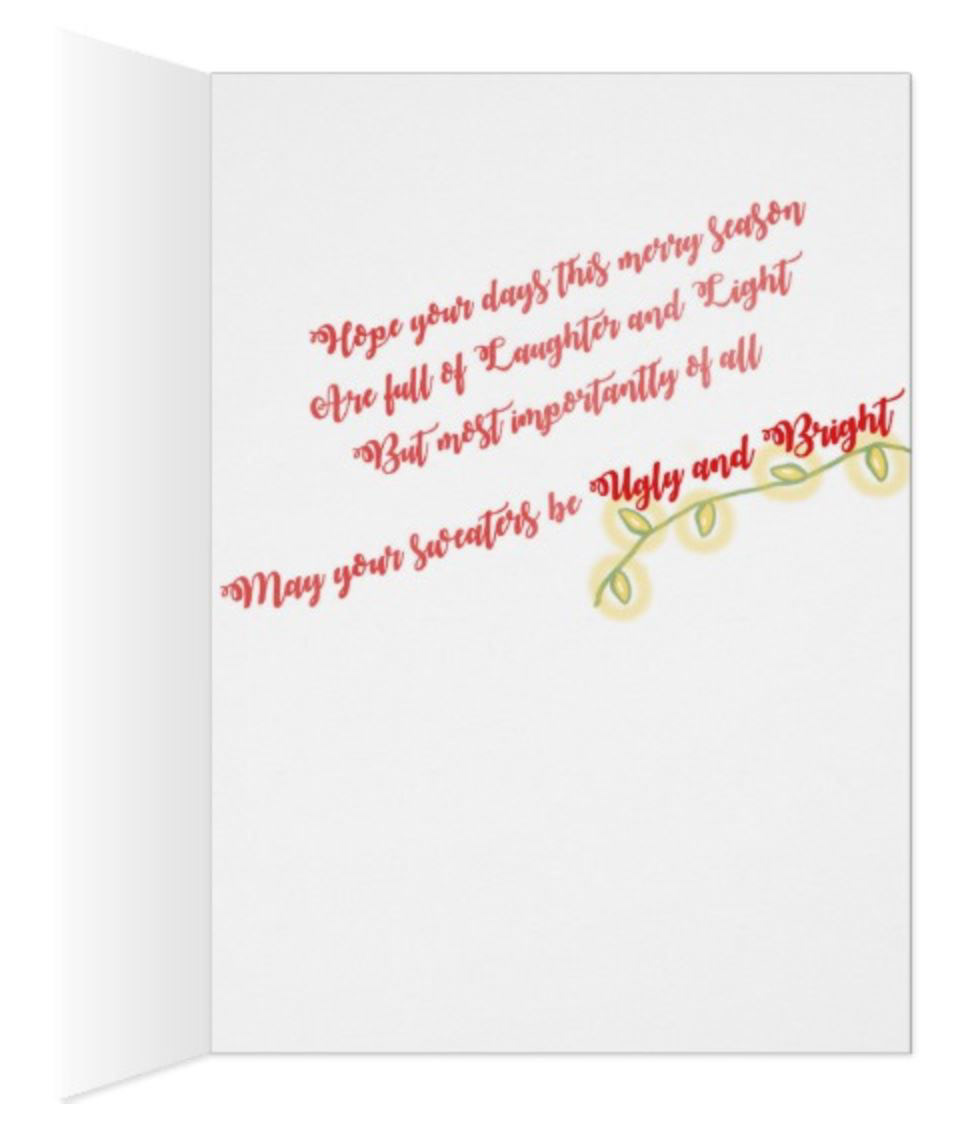 Hope your days this merry season
Are full of Laughter and Light
But most importantly of all
May your sweaters be Ugly and Bright